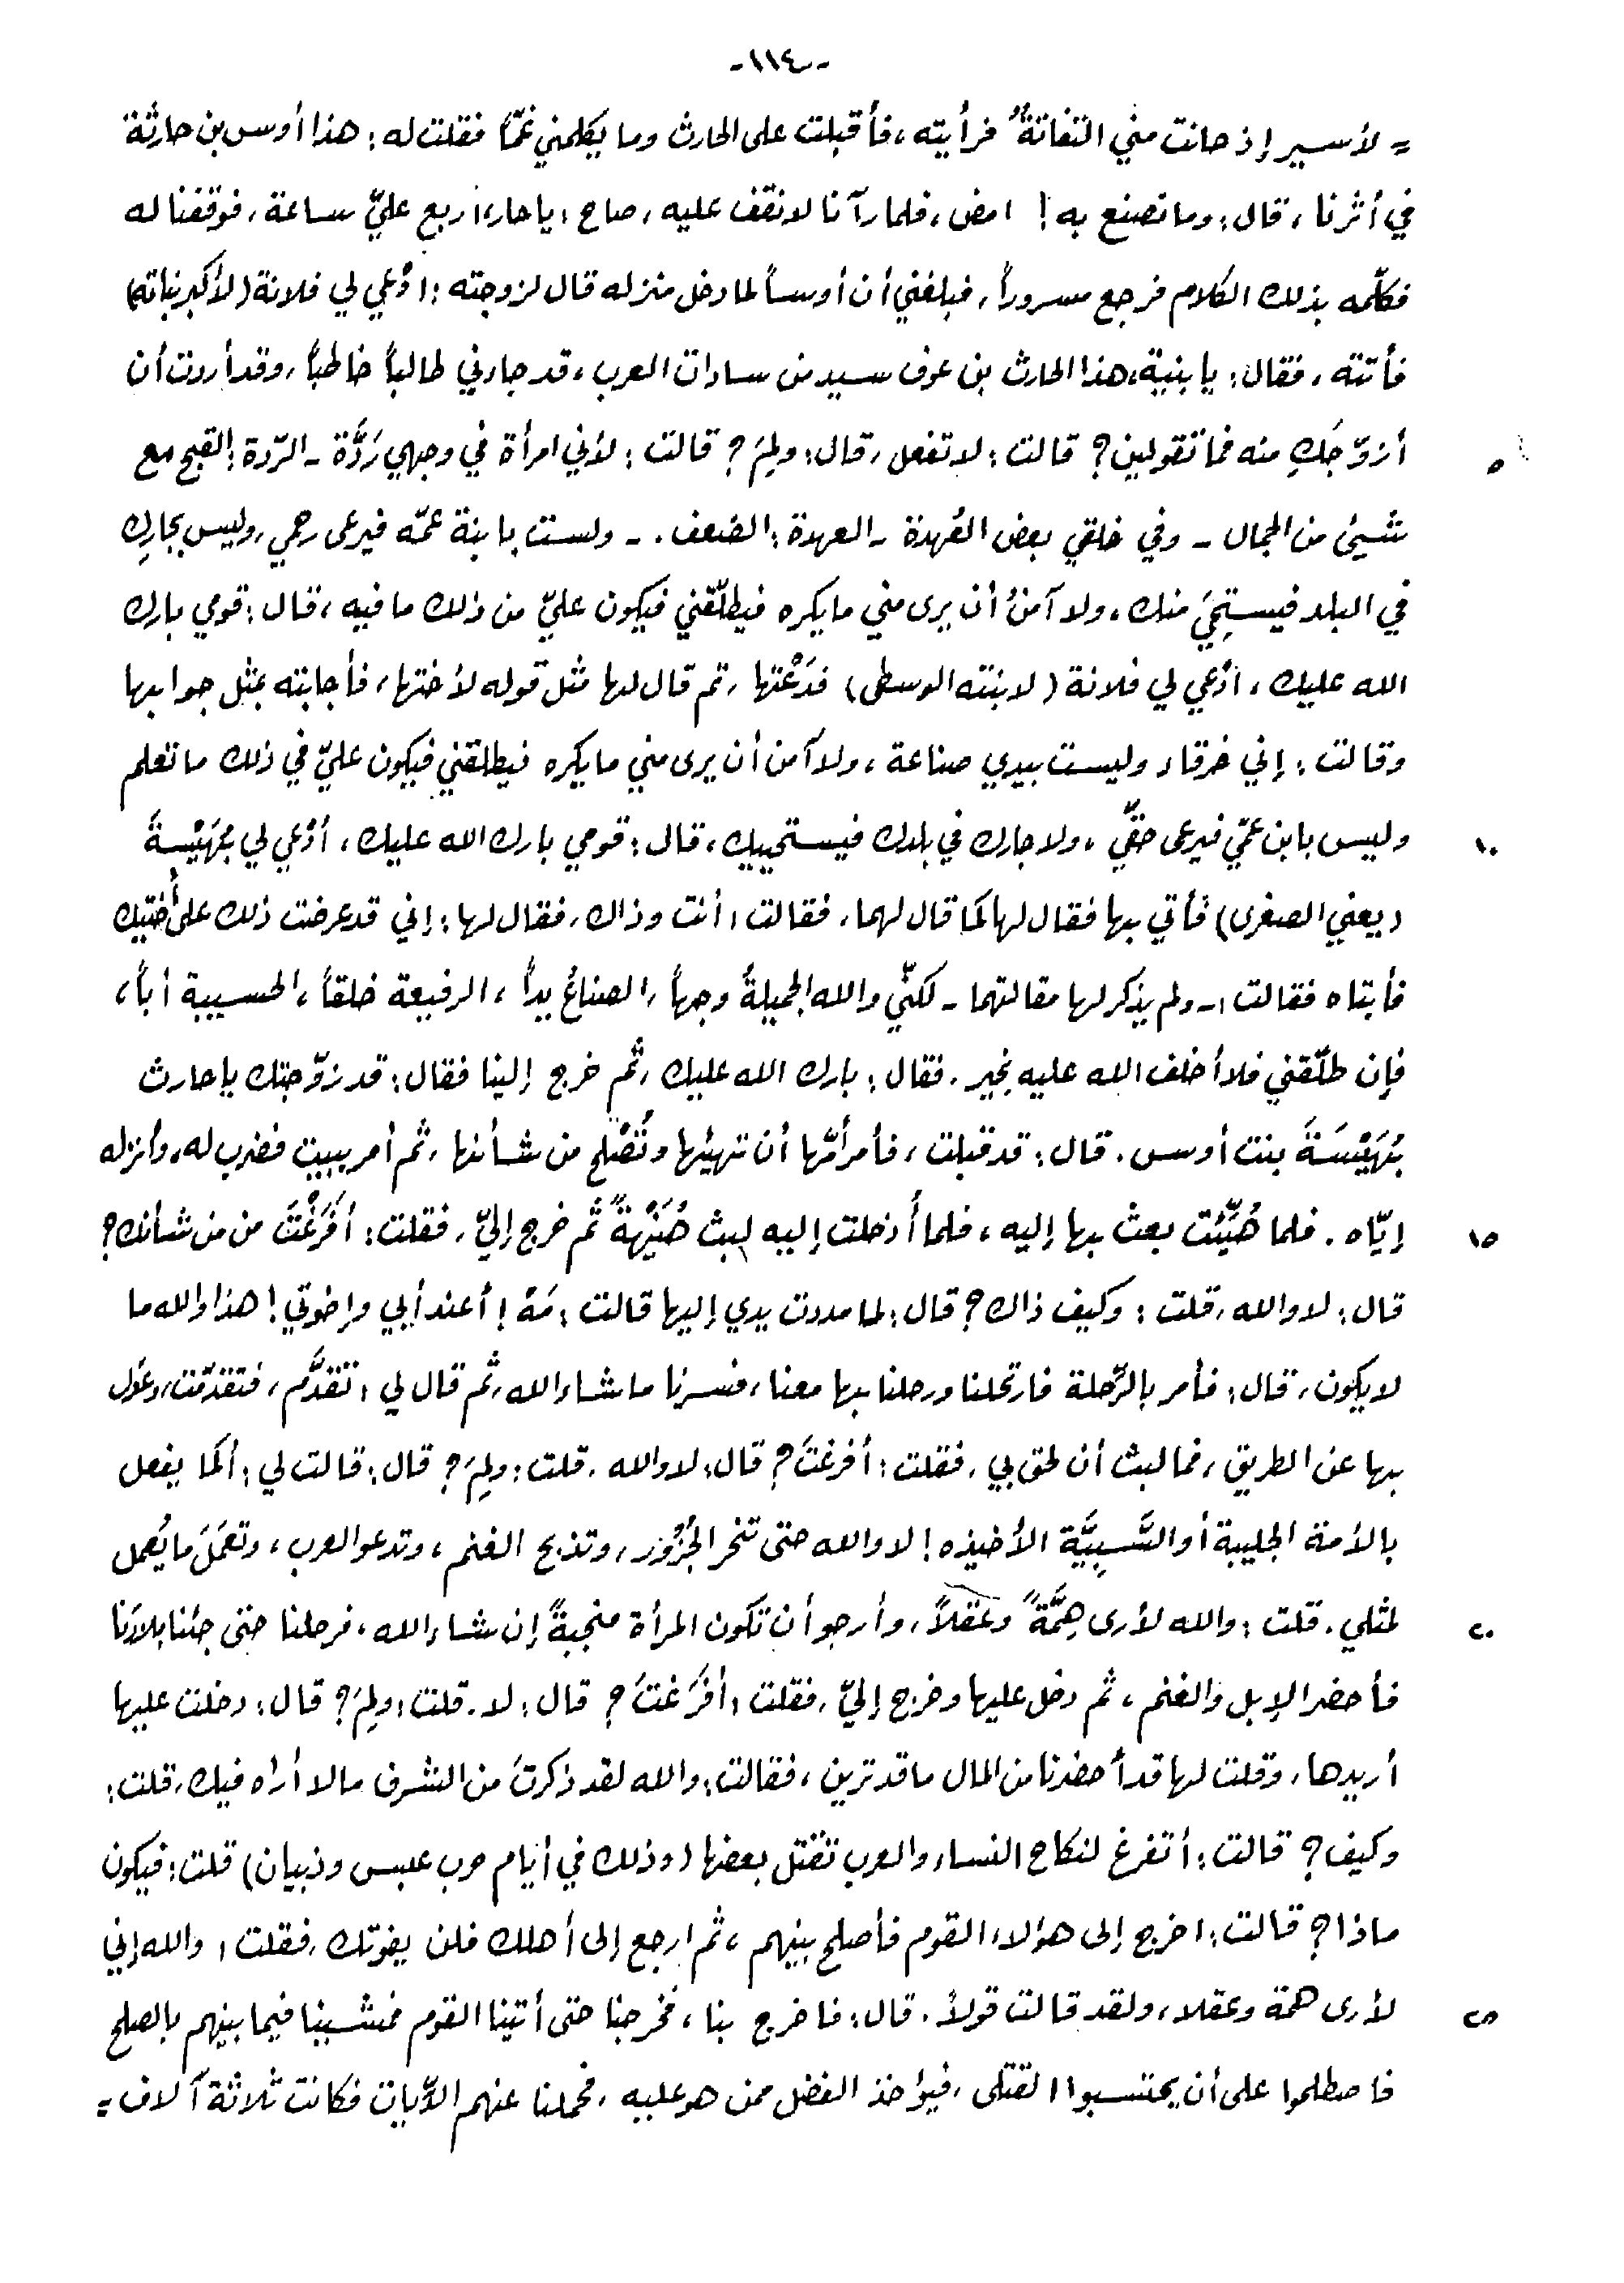 -١١٤-
= لأسير إذ حانت مني التفاتةٌ فرأيته، فأقبلت على الحارث وما يكلمني غمّاً فقلت له: هذا أوس بن حارثة
في أثرنا، قال: وما نصنع به! امض، فلما رآنا لا نقف عليه، صاح: يا حار، اربع عليّ ساعة، فوقفنا له
فكلّمه بذلك الكلام فرجع مسروراً، فبلغني أن أوساً لما دخل منزله قال لزوجته: ادْعي لي فلانة (لأكبر بناته)
فأتته، فقال: يا بنية، هذا الحارث بن عوف سيد من سادات العرب، قد جاءني طالباً خاطباً، وقد أردت أن
أزوّجَكِ منه فما تقولين؟ قالت: لا تفعل، قال: ولِمَ؟ قالت: لأني امرأة في وجهي رَدَّة - الرّدة: القبح مع ٥
شيئ من الجمال - وفي خلقي بعض العُهدة - العهدة: الضعف. - ولست بابنة عمّه فيرعى رحمي، وليس بجارِك
في البلد فيستحِيَ منك، ولا آمنُ أن يرى مني ما يكره فيطلّقني فيكون عليّ من ذلك ما فيه، قال: قومي بارك
الله عليك، ادْعي لي فلانة (لابنته الوسطى) فدَعْتها، ثم قال لها مثل قوله لأختها، فأجابته بمثل جوابها
وقالت: إني خرقاء وليست بيدي صناعة، ولا آمن أن يرى مني ما يكره فيطلقني فيكون عليّ في ذلك ما تعلم
وليس بابن عمّي فيرعى حقّي، ولا جارك في بلدك فيستحييك، قال: قومي بارك الله عليك، أدْعي لي بُهَيْسةَ ١٠
(يعني الصغرى) فأتي بها فقال لها كما قال لهما، فقالت: أنت وذاك، فقال لها: إني قد عرضت ذلك على أُختيك
فأبتاه فقالت: - ولم يذكر لها مقالتهما - لكنّي والله الجميلةُ وجهاً، الصناعُ يداً، الرفيعة خلقاً، الحسيبة أباً،
فإن طلّقني فلا أخلف الله عليه بخير. فقال: بارك الله عليك، ثم خرج إلينا فقال: قد زوّجتك يا حارث
بُهَيْسَةَ بنت أوس. قال: قد قبلت، فأمر أمّها أن تهيئها وتُصْلح من شأنها، ثم أمر ببيت فضرب له، وأنزله
إيّاه. فلما هُيِّئت بعث بها إليه، فلما أُدخلت إليه لبث هُنَيْهةً ثم خرج إليّ، فقلت: أفَرَغْتَ من من شأنك؟ ١٥
قال: لا والله، قلت: وكيف ذاك؟ قال: لما مددت يدي إليها قالت: مَهْ! أعند أبي وإخوتي! هذا والله ما
لا يكون، قال: فأمر بالرّحلة فارتحلنا ورحلنا بها معنا، فسرنا ما شاء الله، ثم قال لي: تقدَّم، فتقدّمت، وعَدل
بها عن الطريق، فما لبث أن لحق بي، فقلت: أفرغتَ؟ قال: لا والله، قلت: ولِمَ؟ قال: قالت لي: أكما يفعل
بالأمة الجليبة أو السَّبِيَّة الأخيذه! لا والله حتى تنحر الجُزُور، وتذبح الغنم، وتدعو العرب، وتعمَلَ ما يُعمل
لمثلي. قلت: والله لأرى هِمَّةً وعقلاً، وأرجو أن تكون المرأة منجبةً إن شاء الله، فرحلنا حتى جئنا بلادَنا ٢٠
فأحضر الإبل والغنم، ثم دخل عليها وخرج إليّ، فقلت: أفَرَغتَ؟ قال: لا. قلت: ولِمَ؟ قال: دخلت عليها
أريدها، وقلت لها قد أحضرنا من المال ما قد ترين، فقالت: والله لقد ذكرتَ من الشرف ما لا أراه فيك، قلت:
وكيف؟ قالت: أتفرغ لنكاح النساء والعرب تقتل بعضها (وذلك في أيام حرب عبس وذبيان) قلت: فيكون
ماذا؟ قالت: اخرج إلى هؤلاء القوم فأصلح بينهم، ثم ارجع إلى أهلك فلن يفوتك، فقلت: والله إني
لأرى همة وعقلا، ولقد قالت قولاً. قال: فاخرج بنا، فخرجنا حتى أتينا القوم فمشينا فيما بينهم بالصلح ٢٥
فاصطلحوا على أن يحتسبوا القتلى، فيؤخذ الفضل ممن هو عليه، فحملنا عنهم الدّيات فكانت ثلاثة آلاف =